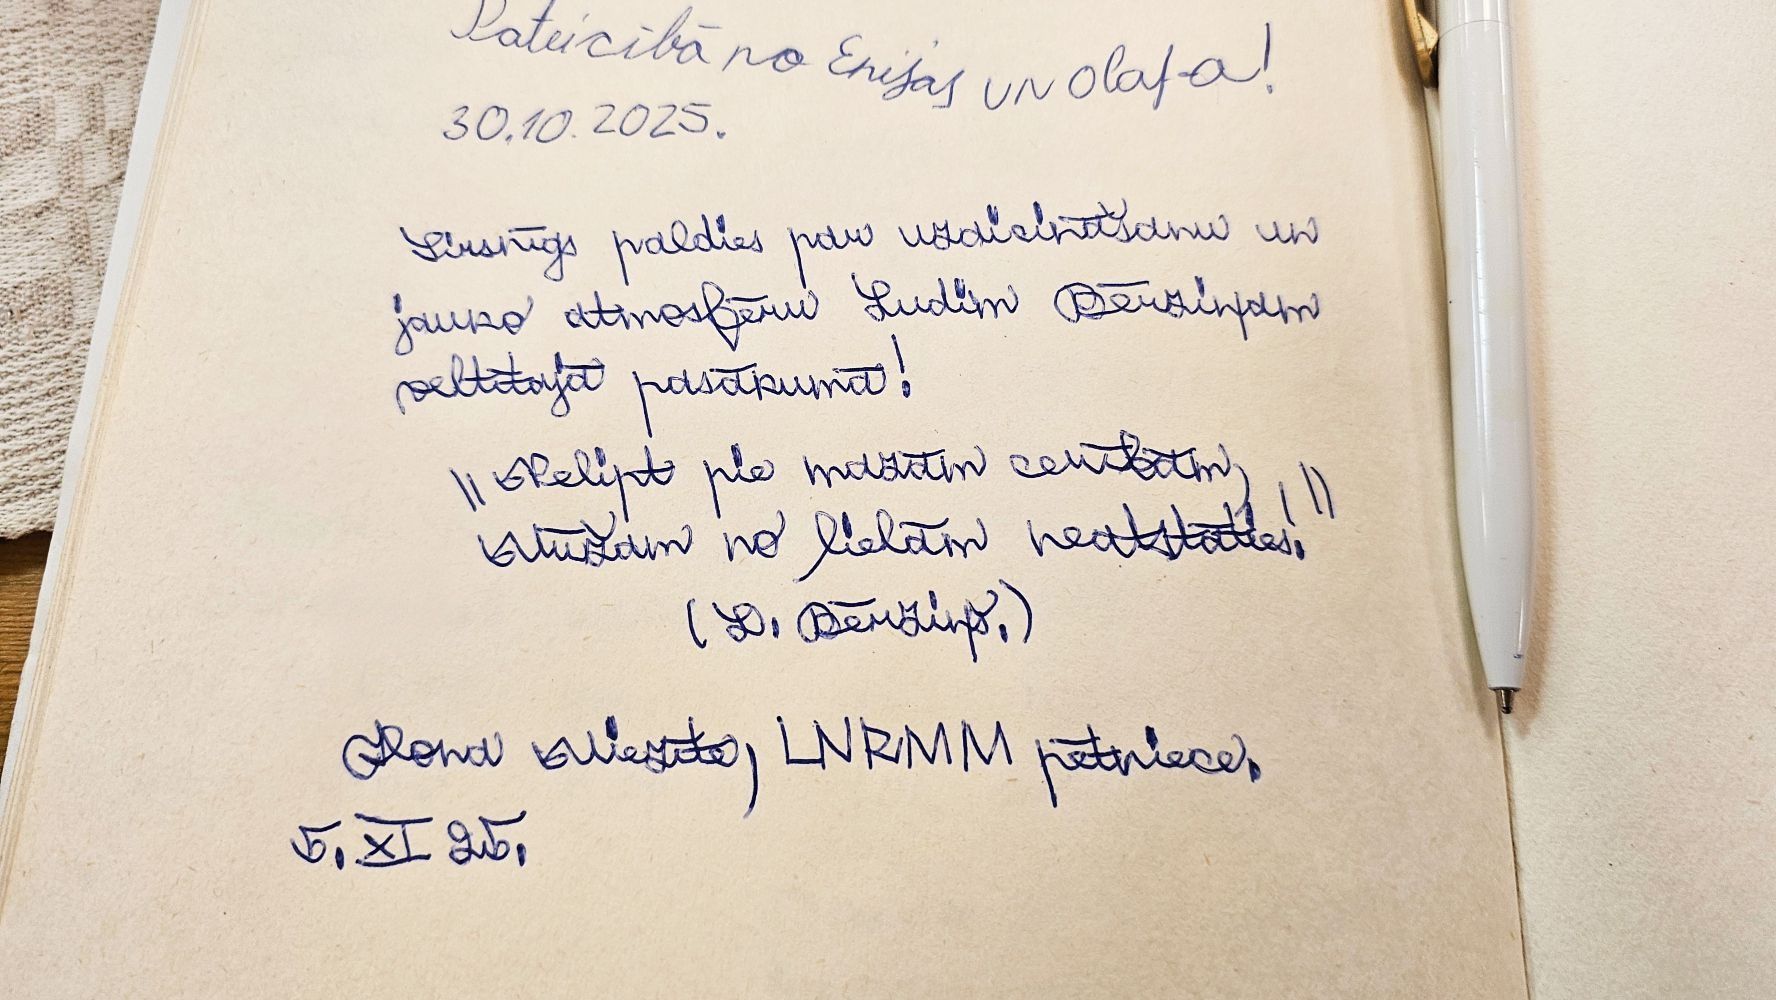 Pateicībā no Enijas un Olafa!
30.10.2025.
Sirsnīgs paldies par uzaicināšanu un
jauko atmosfēru Ludim Bērziņam
veltītajā pasākumā!
"Nelipt pie mazām cerībām,
no lielām neatstāties!"
(L. Bērziņš.)
Ilona Miezīte, LNRMM pētniece.
5. XI 25.